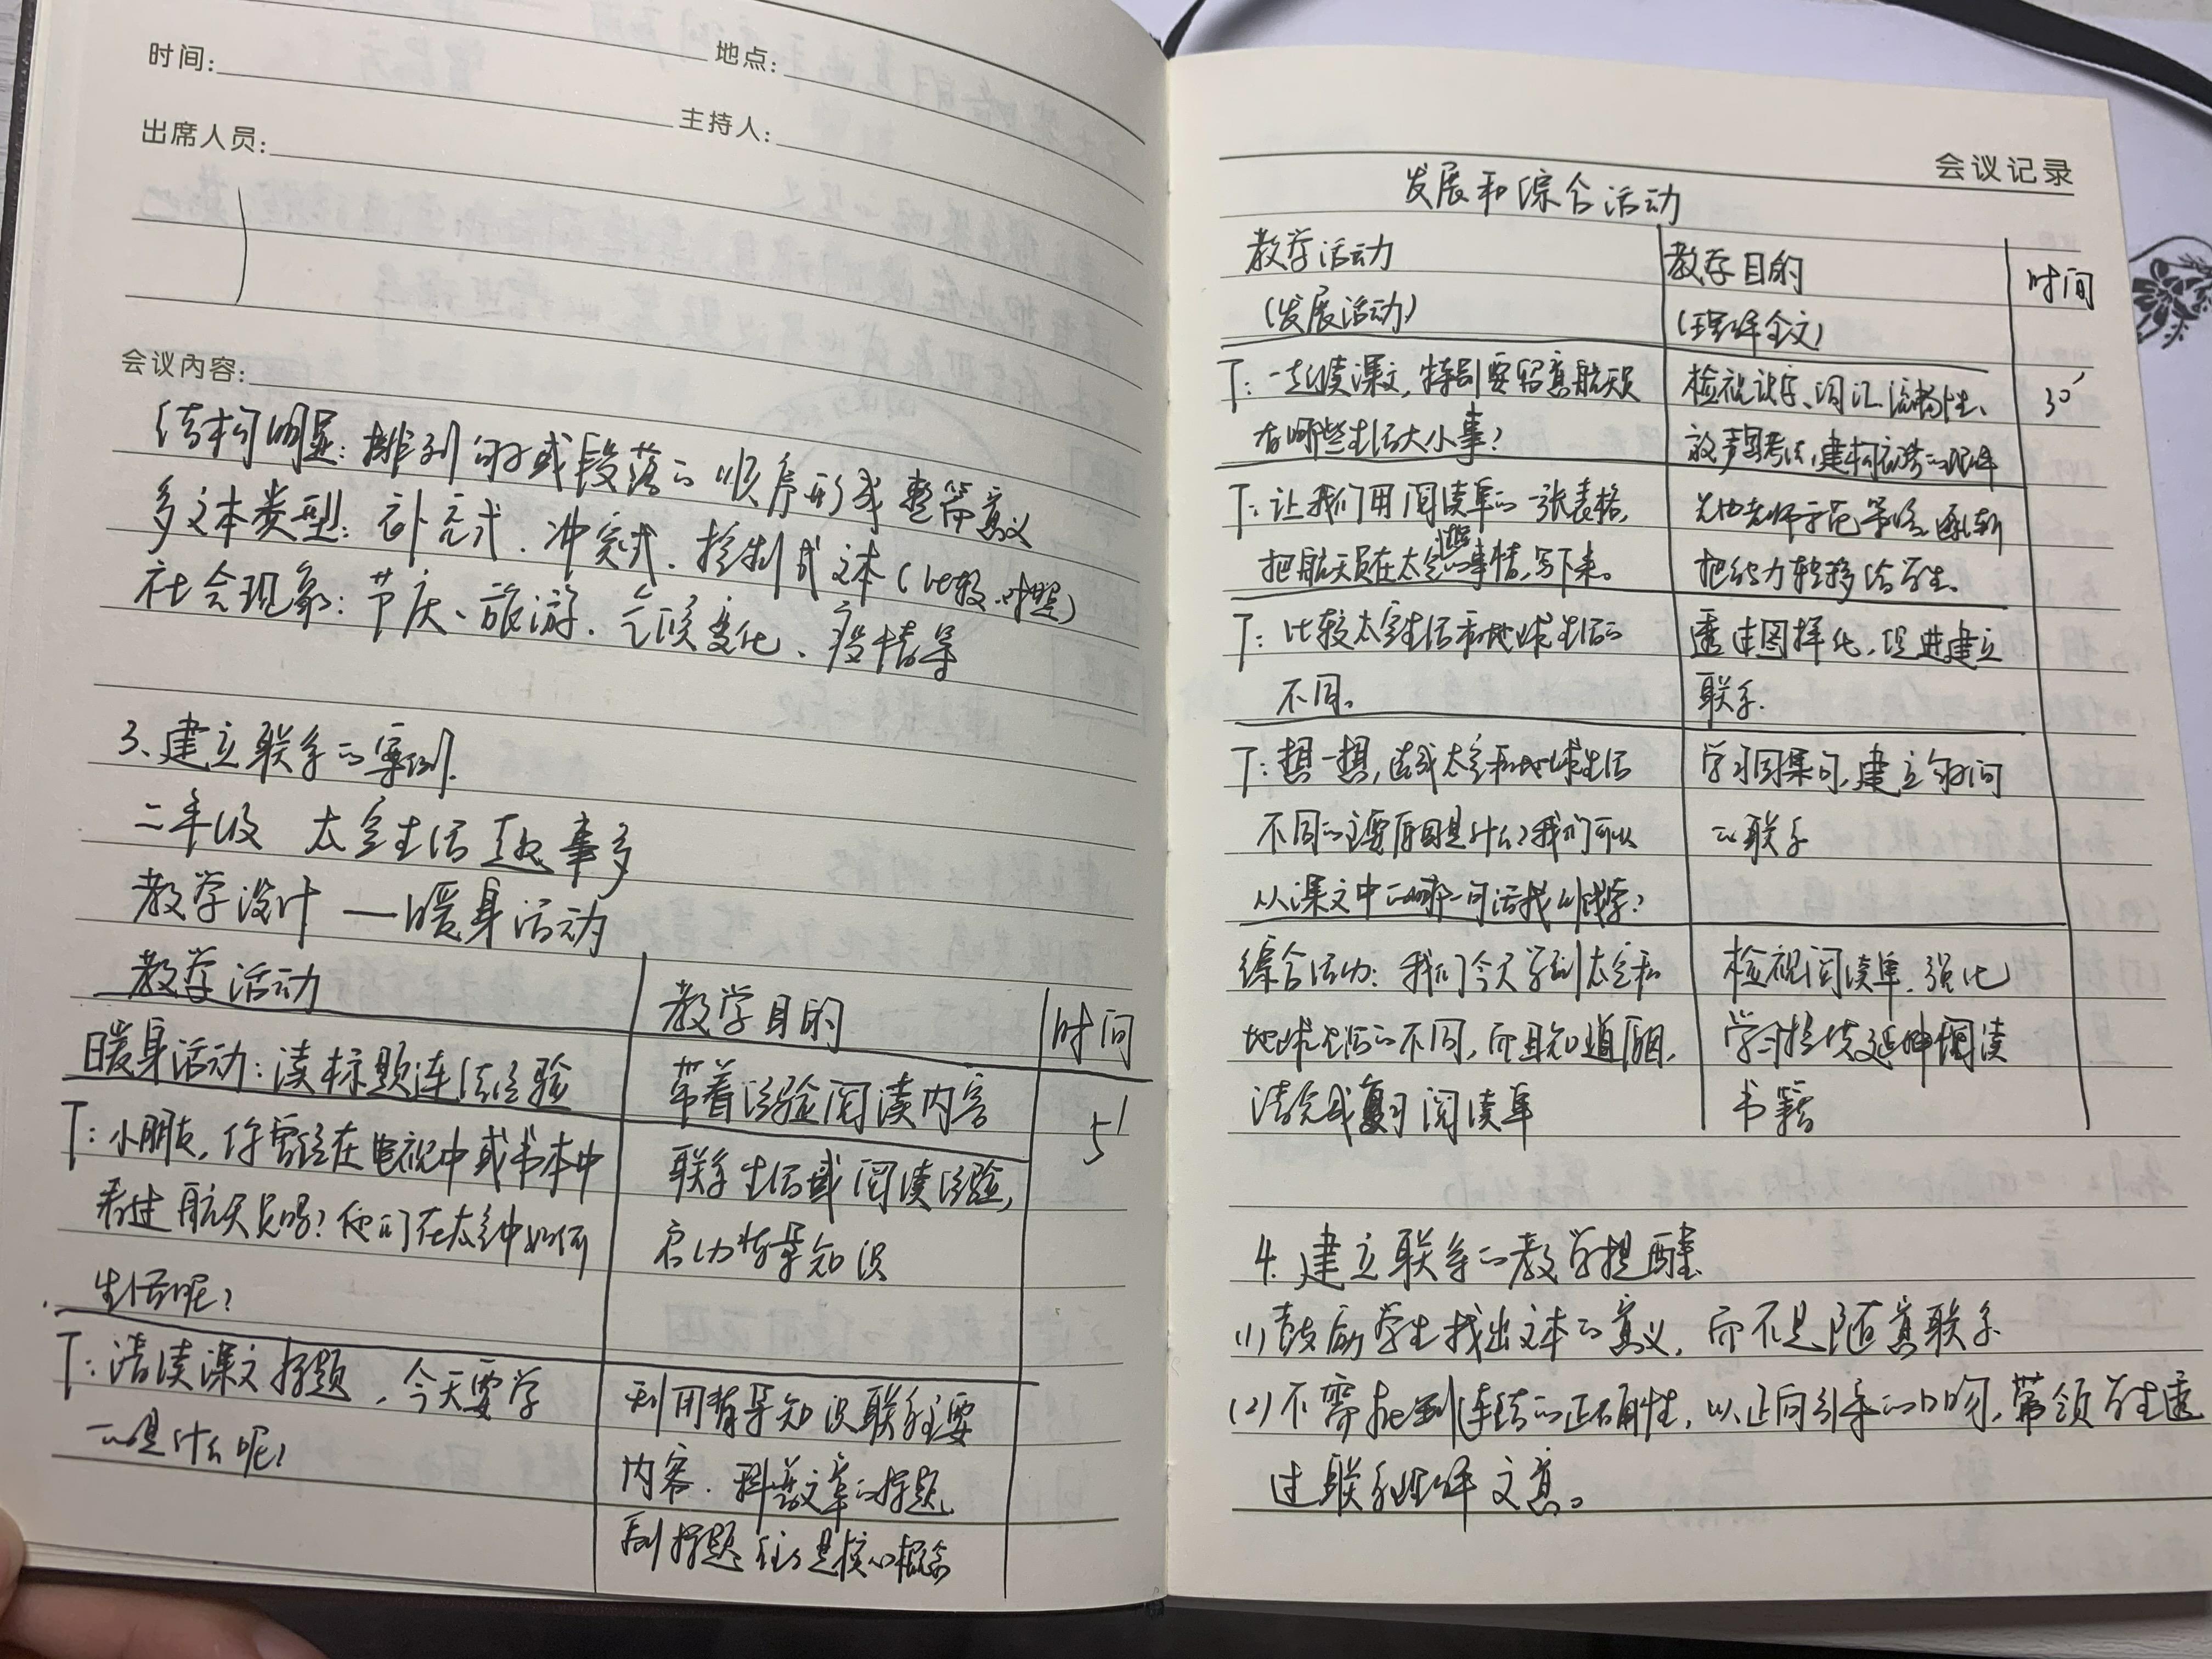 时间:
地点:
出席人员:
主持人:
会议内容:
结构明显:排列句子或段落的顺序形成整篇意义
多文本类型:补充式、冲突式、控制式文本(比较、对照)
社会现象:节庆、旅游、气候变化、疫情等
3、建立联系的案例.
二年级 太空生活趣事多
教学设计 —暖身活动
教学活动 教学目的 时间
暖身活动:读标题连结经验 带着经验阅读内容 5'
T:小朋友,你曾经在电视中或书本中 联系生活或阅读经验,
看过航天员吗?他们在太空中如何 启动背景知识
生活呢?
T:请读课文标题,今天要学 利用背景知识联系主要
的是什么呢? 内容.科普文章的标题
副标题往往是核心概念
会议记录
发展和综合活动
教学活动 教学目的 时间
(发展活动) (理解全文)
T:一起读课文,特别要留意航天员 检视识字、词汇流畅性、 30'
有哪些生活大小事? 放声思考法,建构应考的理解
T:让我们用阅读单的一张表格, 先由老师示范策略,逐渐
把航天员在太空的事情,写下来。 把能力转移给学生、
T:比较太空生活和地球生活的 透过图样化,促进建立
不同。 联系.
T:想一想,造成太空和地球生活 学习因果句,建立句子间
不同的主要原因是什么?我们可以 的联系
从课文中的哪一句话找到线索?
综合活动:我们今天学到太空和 检视阅读单.强化
地球生活的不同,而且知道原因, 学习持续延伸阅读
请完成复习阅读单 书籍
4.建立联系的教学提醒
(1)鼓励学生找出文本的意义,而不是随意联系
(2)不需拘泥到连结的正确性,以正向引导的口吻,带领学生透
过联系理解文意。